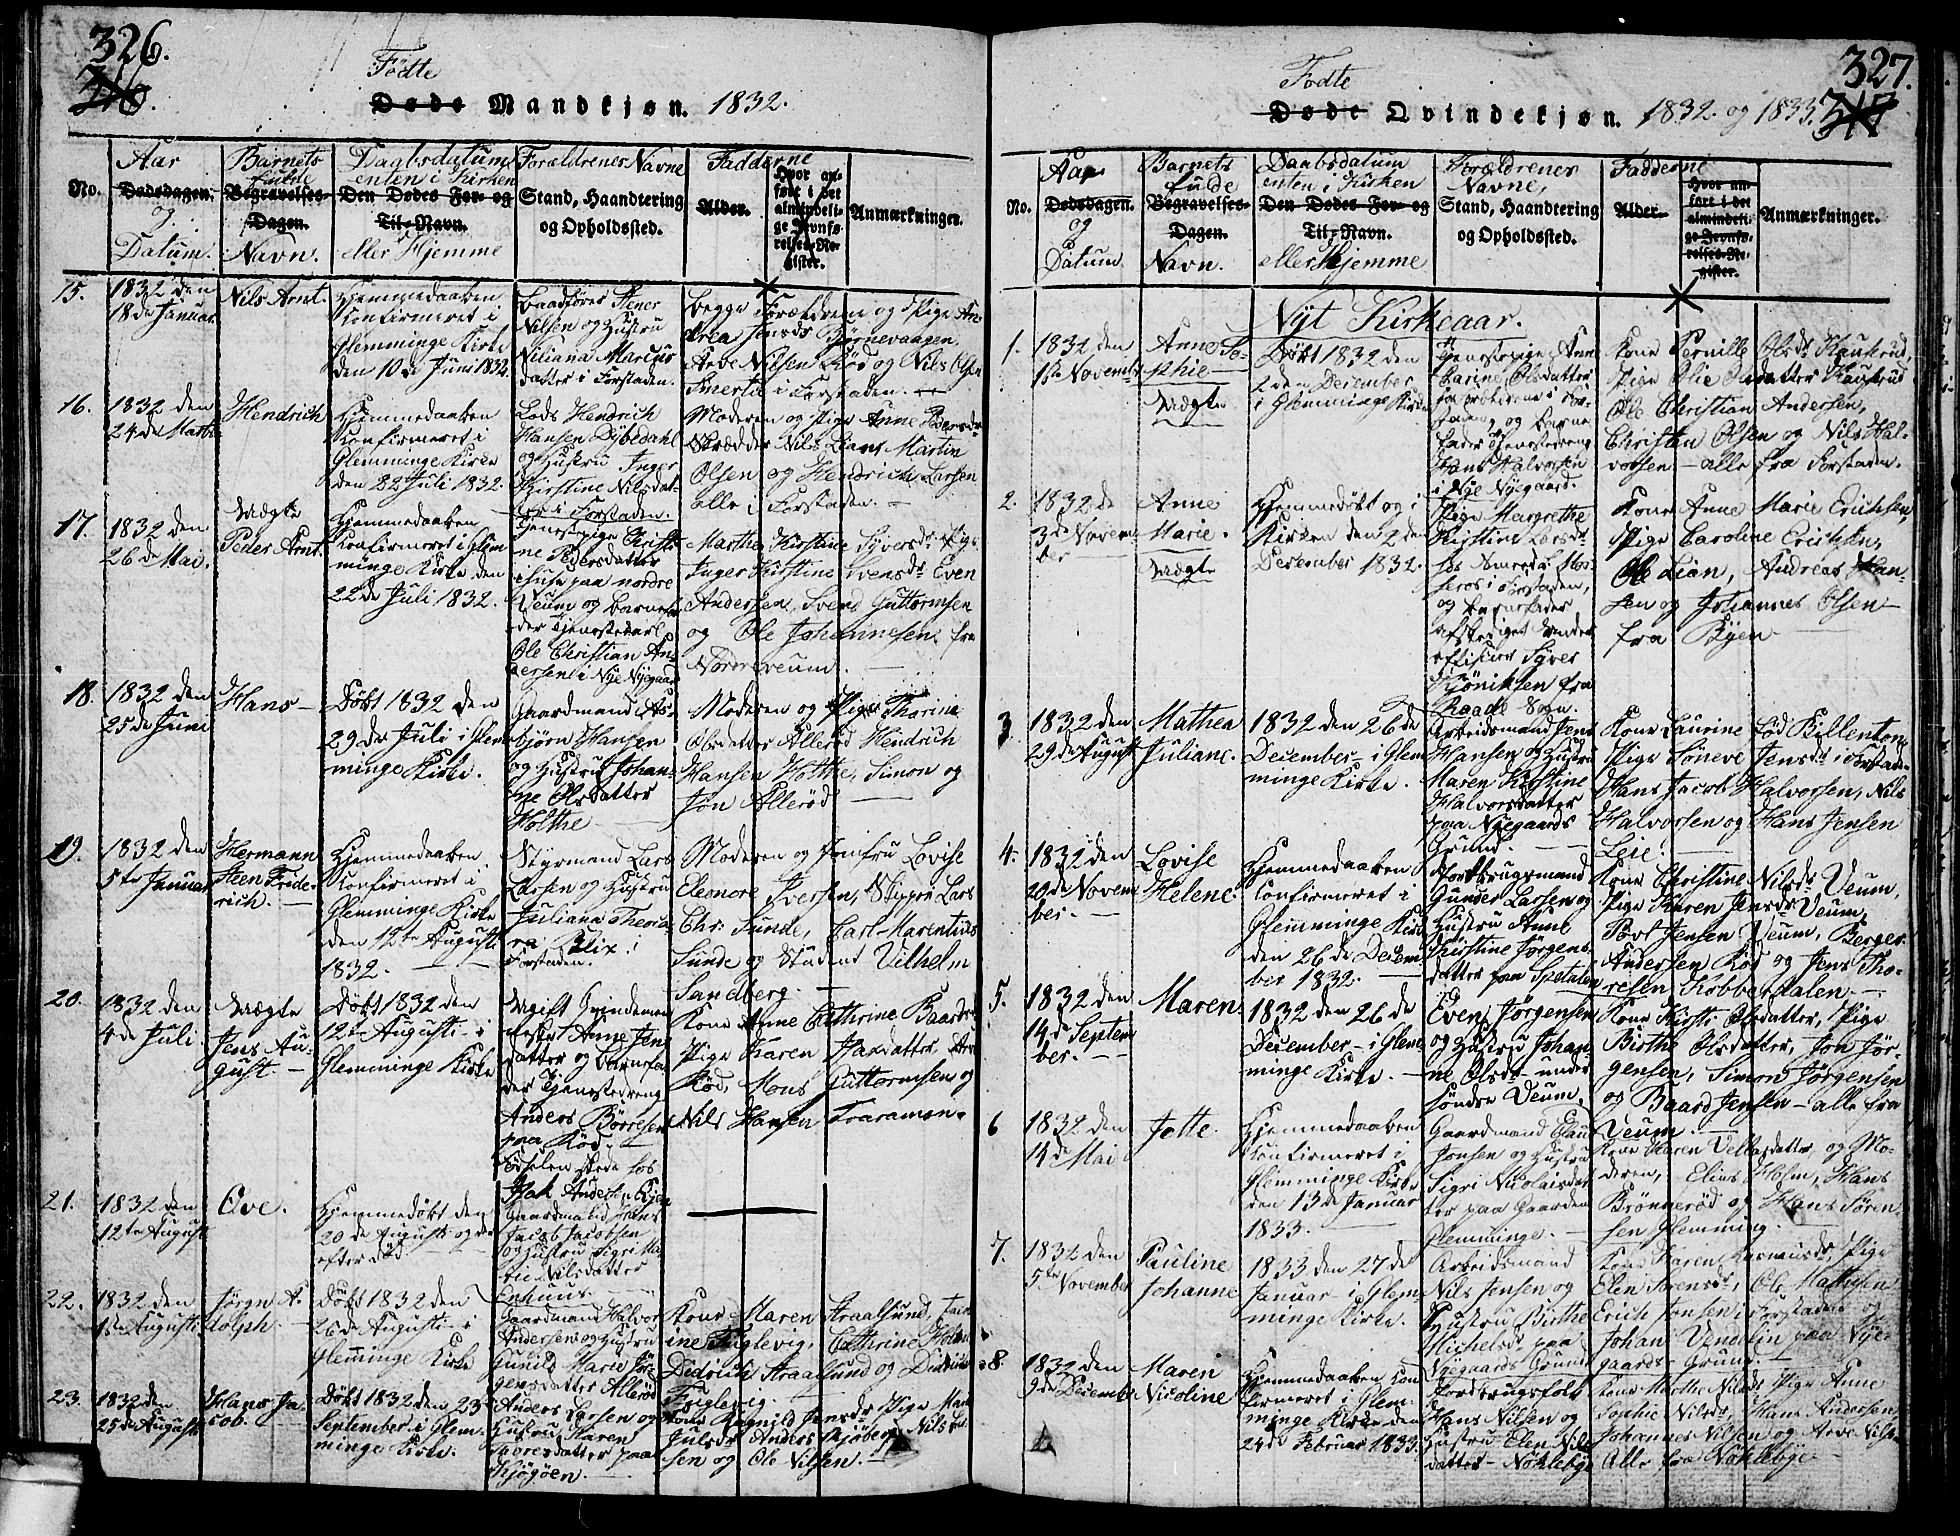 326.
316.
Födte
Døde Mandkjøn. 1832.
No.
Aar
Dødsdagen.
og
Datum.
Barnets
fulde
Begravelses-
Dagen.
Navn.
Daabsdatum
enten i Kirken
Den Dødes For- og
Til-Navn.
eller Hjemme
Forældrenes Navne
Stand, Haandtering
og Opholdssted.
Fadderne
Alder.
Hvor an-
ført i det
almindeli-
ge Jevnfø-
relses-Re-
gister.
Anmærkninger.
15.
1832 den
18de Januar
Nils Arnt.
Hjemmedaaben
Konfirmeret i
Glemminge Kirke
den 10de Juni 1832.
Baadförer Stener
Nilsen og Hustru
Niliana Marcus
datter i Forstaden.
Begge Forældrene og Pige An-
drea Jensdr Börnevaagen,
Arve Nilsen Röd og Nils Olsen
Smertu i Forstaden.
16.
1832 den
24de Marts
Hendrich
Hjemmedaaben
Konfirmeret i
Glemminge Kirke
den 22 Juli 1832.
Lods Hendrich
Hansen Dybedahl
og Hustru Inger
Kirstine Nilsdat-
ter i Forstaden.
Moderen og Pige Anne Pedersdr
Skrædder Nils Lians Martin
Olsen og Hendrich Larsen
alle i Forstaden.
17.
1832 den
26de Mai.
Uægte
Peder Arnt.
Hjemmedaaben
Konfirmeret i Glem-
minge Kirke den
22de Juli 1832.
Tjenestepige Christi-
ne Pedersdatter
i huse paa nordre
Veum og Barnefa-
der Tjenestekarl
Ole Christian An-
dersen i Nye Nygaard
Marthe Kirstine Syversdr Pige
Inger Kirstine Svensdr Even
Andersen, Svend Guttormsen
og Ole Johannesen fra
Nordre Veum.
18.
1832 den
25de Juni
Hans
Döbt 1832 den
29de Juli i Glem-
minge Kirke.
Gaardmand As-
björn Hansen
og Hustru Johan-
ne Olsdatter
Holthe
Moderen og Pige Thorine
Olsdatter Alleröd Hendrich
Hansen Holthe, Simon og
Jon Alleröd
19.
1832 den
5te Januar
Hermann
Steen Fride-
rich.
Hjemmedaaben
Konfirmeret i
Glemminge Kirke
den 12te Augusti
1832.
Styrmand Lars
Larsen og Hustru
Juliana Theodo
ra Blix i
Forstaden.
Moderen og Jomfru Lovise
Eleonore Iversen, Skipper Lars
Chr: Sunde, Carl Marentius
Sunde og Student Vilhelm
Sandberg.
20.
1832 den
4de Juli
Uægte
Jens Au-
gust.
Döbt 1832 den
12te Augusti i
Glemminge Kirke
Ugift Qvindemen-
neske Anne Jens
datter og Barnefa-
der Tjenestedreng
Anders Börresen
paa Röd.
Födselen skede hos
Isak Andersen Kjen
Kone Anne Cathrine Baardsdr
Pige Karen Isaxdatter, Arve
Röd, Mons Guttormsen og
Nils Hansen Traramen
21.
1832 den
12te August
Ove.
Hjemmedöbt den
20de Augusti og der-
efter död
Gaardmand Hans
Jacob Jacobsen
og Hustru Sigri Ma
rie Nilsdatter
Enhuus
22.
1832 den
1ste Augusti
Jörgen A-
dolph.
Döbt 1832 den
26de Augusti i
Glemminge Kirke
Gaardmand Halvor
Andersen og Hustru
Gunild Marie Jör-
gensdatter Alleröd
Kone Maren Straalsund,
ine Fuglevig, Cathrine Holm
Didrich Straalsund og Didrich
Fuglevig.
23.
1832 den
25de Augusti
Hans Ja
cob.
Döbt 1832 den 23
September i Glem-
minge Kirke.
Anders Larsen og
Hustru Karen
Thoresdatter paa
Kjögöen.
Kone Ragnild Jensdr Pige Mari
Julsdr Anders Kjöberg, Nils
sen og Ole Nilsen.
327.
317
Födte
Døde Qvindekjøn. 1832. og 1833.
No.
Aar
Dødsdagen.
og
Datum.
Barnets
fulde
Begravelses-
Dagen.
Navn.
Daabsdatum
enten i Kirken
Den Dødes For- og
Til-Navn.
eller Hjemme
Forældrenes
Navne,
Stand, Haandtering
og Opholdssted.
Fadderne
Alder.
Hvor an-
ført i det
almindeli-
ge Jevnfø-
relses-Re-
gister.
Anmærkninger.
Nyt Kirkeaar.
1.
1832 den
1ste Novemb
Anne So-
phie
Uægte
Döbt 1832 den
2den December
i Glemminge Kirke
Tjenestepige Anne
Carine Olsdatter
fra Forstaden, og Barne-
fader Tjenestedreng
Hans Halvorsen
i Nye Nyegaard.
Kone Pernille Olsdr Haukröd,
Pige Olie Olsdatter Haukröd
Ole Christian Andersen,
Christian Olsen og Nils Hal-
vorsen alle fra Forstaden.
2.
1832 de
3de Novem-
ber
Anne
Marie.
Uægte
Hjemmedöbt og i
Kirken den 2den
December 1832.
Pige Margrethe
Kirstine Larsdr
hos Smeed L. Mos-
serös i Forstaden,
og Barnefader
afskediget Under-
officier Syver
Krönichsen fra
Raade Sogn.
Kone Anne Marie Erichsen,
Pige Caroline Erichsen,
Ole Lian, Andreas Han-
sen og Johannes Olsen
fra Byen
3
1832 den
29de August
Mathea
Juliane.
1832 den 26de
December i Glem-
minge Kirke.
Arbeidsmand Jens
Hansen og Hustru
Maren Kirstine
Halvorsdatter
paa Nyegaards
Grund.
Kone Laurine föd Killenton
Pige Söneve Jensdr i Forstaden
Hans Jacob Halvorsen, Nils
Halvorsen og Hans Jensen
Leie.
4.
1832 den
20de Novem-
ber.
Lovise
Helene.
Hjemmedaaben
Confirmeret i
Glemminge Kirke
den 26de Decem-
ber 1832.
Jordbrugsmand
Gunder Larsen og
Hustru Anne
Kirstine Jörgens
datter paa Spetalen
Kone Christine Nilsdr Veum,
Pige Karen Jensdr Veum,
Poul Jensen Veum, Berger
Andersen Röd og Jens Tho-
resen Robberdalen.
5.
1832 den
14de Septem
ber.
Maren
1832 den 26de
December i Glem-
minge Kirke.
Even Jörgensen
og Hustru Johan-
ne Olsdr under
söndre Veum.
Kone Kirsti Olsdatter, Pige
Birthe Olsdatter, Jon Jör-
gensen, Simon Jörgensen
og Baard Jensen alle fra
Veum.
6
1832 den
14de Mai
Jotte.
Hjemmedaaben
Confirmeret i
Glemminge Kirke
den 13de Januar
1833.
Gaardmand Clau
Jonsen og Hustru
Sigri Nicolaisdat
ter paa Gaarden
Glemminge.
Kone Karen Vellasdatter, og Mo-
deren, Elias Holm, Hans
Brönneröd og Hans Sören-
sen Glemming.
7.
1832 den
5te November
Pauline
Johanne
1833 den 27de
Januar i Glem-
minge Kirke.
Arbeidsmand
Nils Jensen og
Hustru Birthe
Michelsdr paa
Nyegaards Grund
Kone Karen Rasmusdr, Pige
Elen Sörensdr, Ole Mathisen
Erich Jensen i Forstaden og
Johan Vendelin paa Nye-
gaards Grund.
8.
1832 den
9de December
Maren
Nicoline
Hjemmedaaben Con-
firmeret i Glem-
minge Kirke den
24de Februar 1833.
Jordbrugsfolk
Hans Nilsen og
Hustru Elen Nils
datter Nöklebye
Kone Marthe Nilsdr Pige Anne
Sophie Nilsdr, Hans Andersen
Johannes Nilsen og Arve Nils-
Alle fra Nöklebye.